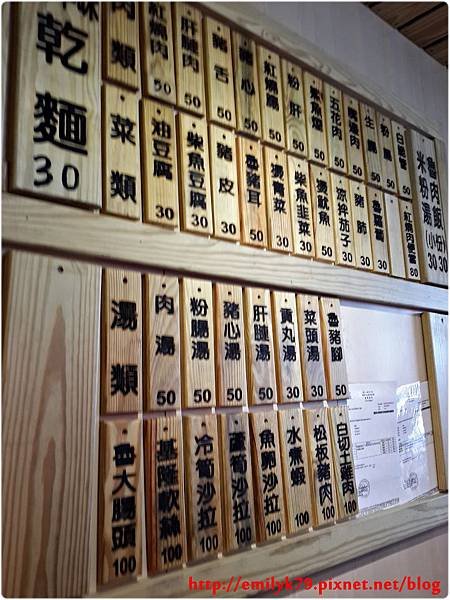 乾麵 30
肉類
紅燒肉 50
肝腱肉 50
豬舌 50
豬心 50
紅燒鰻 50
粉肝 50
鯊魚煙 50
五花肉 50
嘴邊肉 50
生腸 50
粉腸 50
菜類
油豆腐 30
柴魚豆腐 30
豬皮 30
魯豬耳 50
燙青菜 30
柴魚韭菜 30
燙魷魚 50
涼拌茄子 30
豬肺 30
紅燒肉便當 80
魯肉飯 (小份) 30
米粉湯 30
湯類
肉湯 50
粉腸湯 50
豬心湯 50
肝腱湯 50
貢丸湯 30
菜頭湯 30
魯豬腳 50
魯大腸頭 100
基隆軟絲 100
冷筍沙拉 100
蘆筍沙拉 100
魚卵沙拉 100
水煮蝦 100
松板豬肉 100
白切土雞肉 100
http://emilyk79.pixnet.net/blog